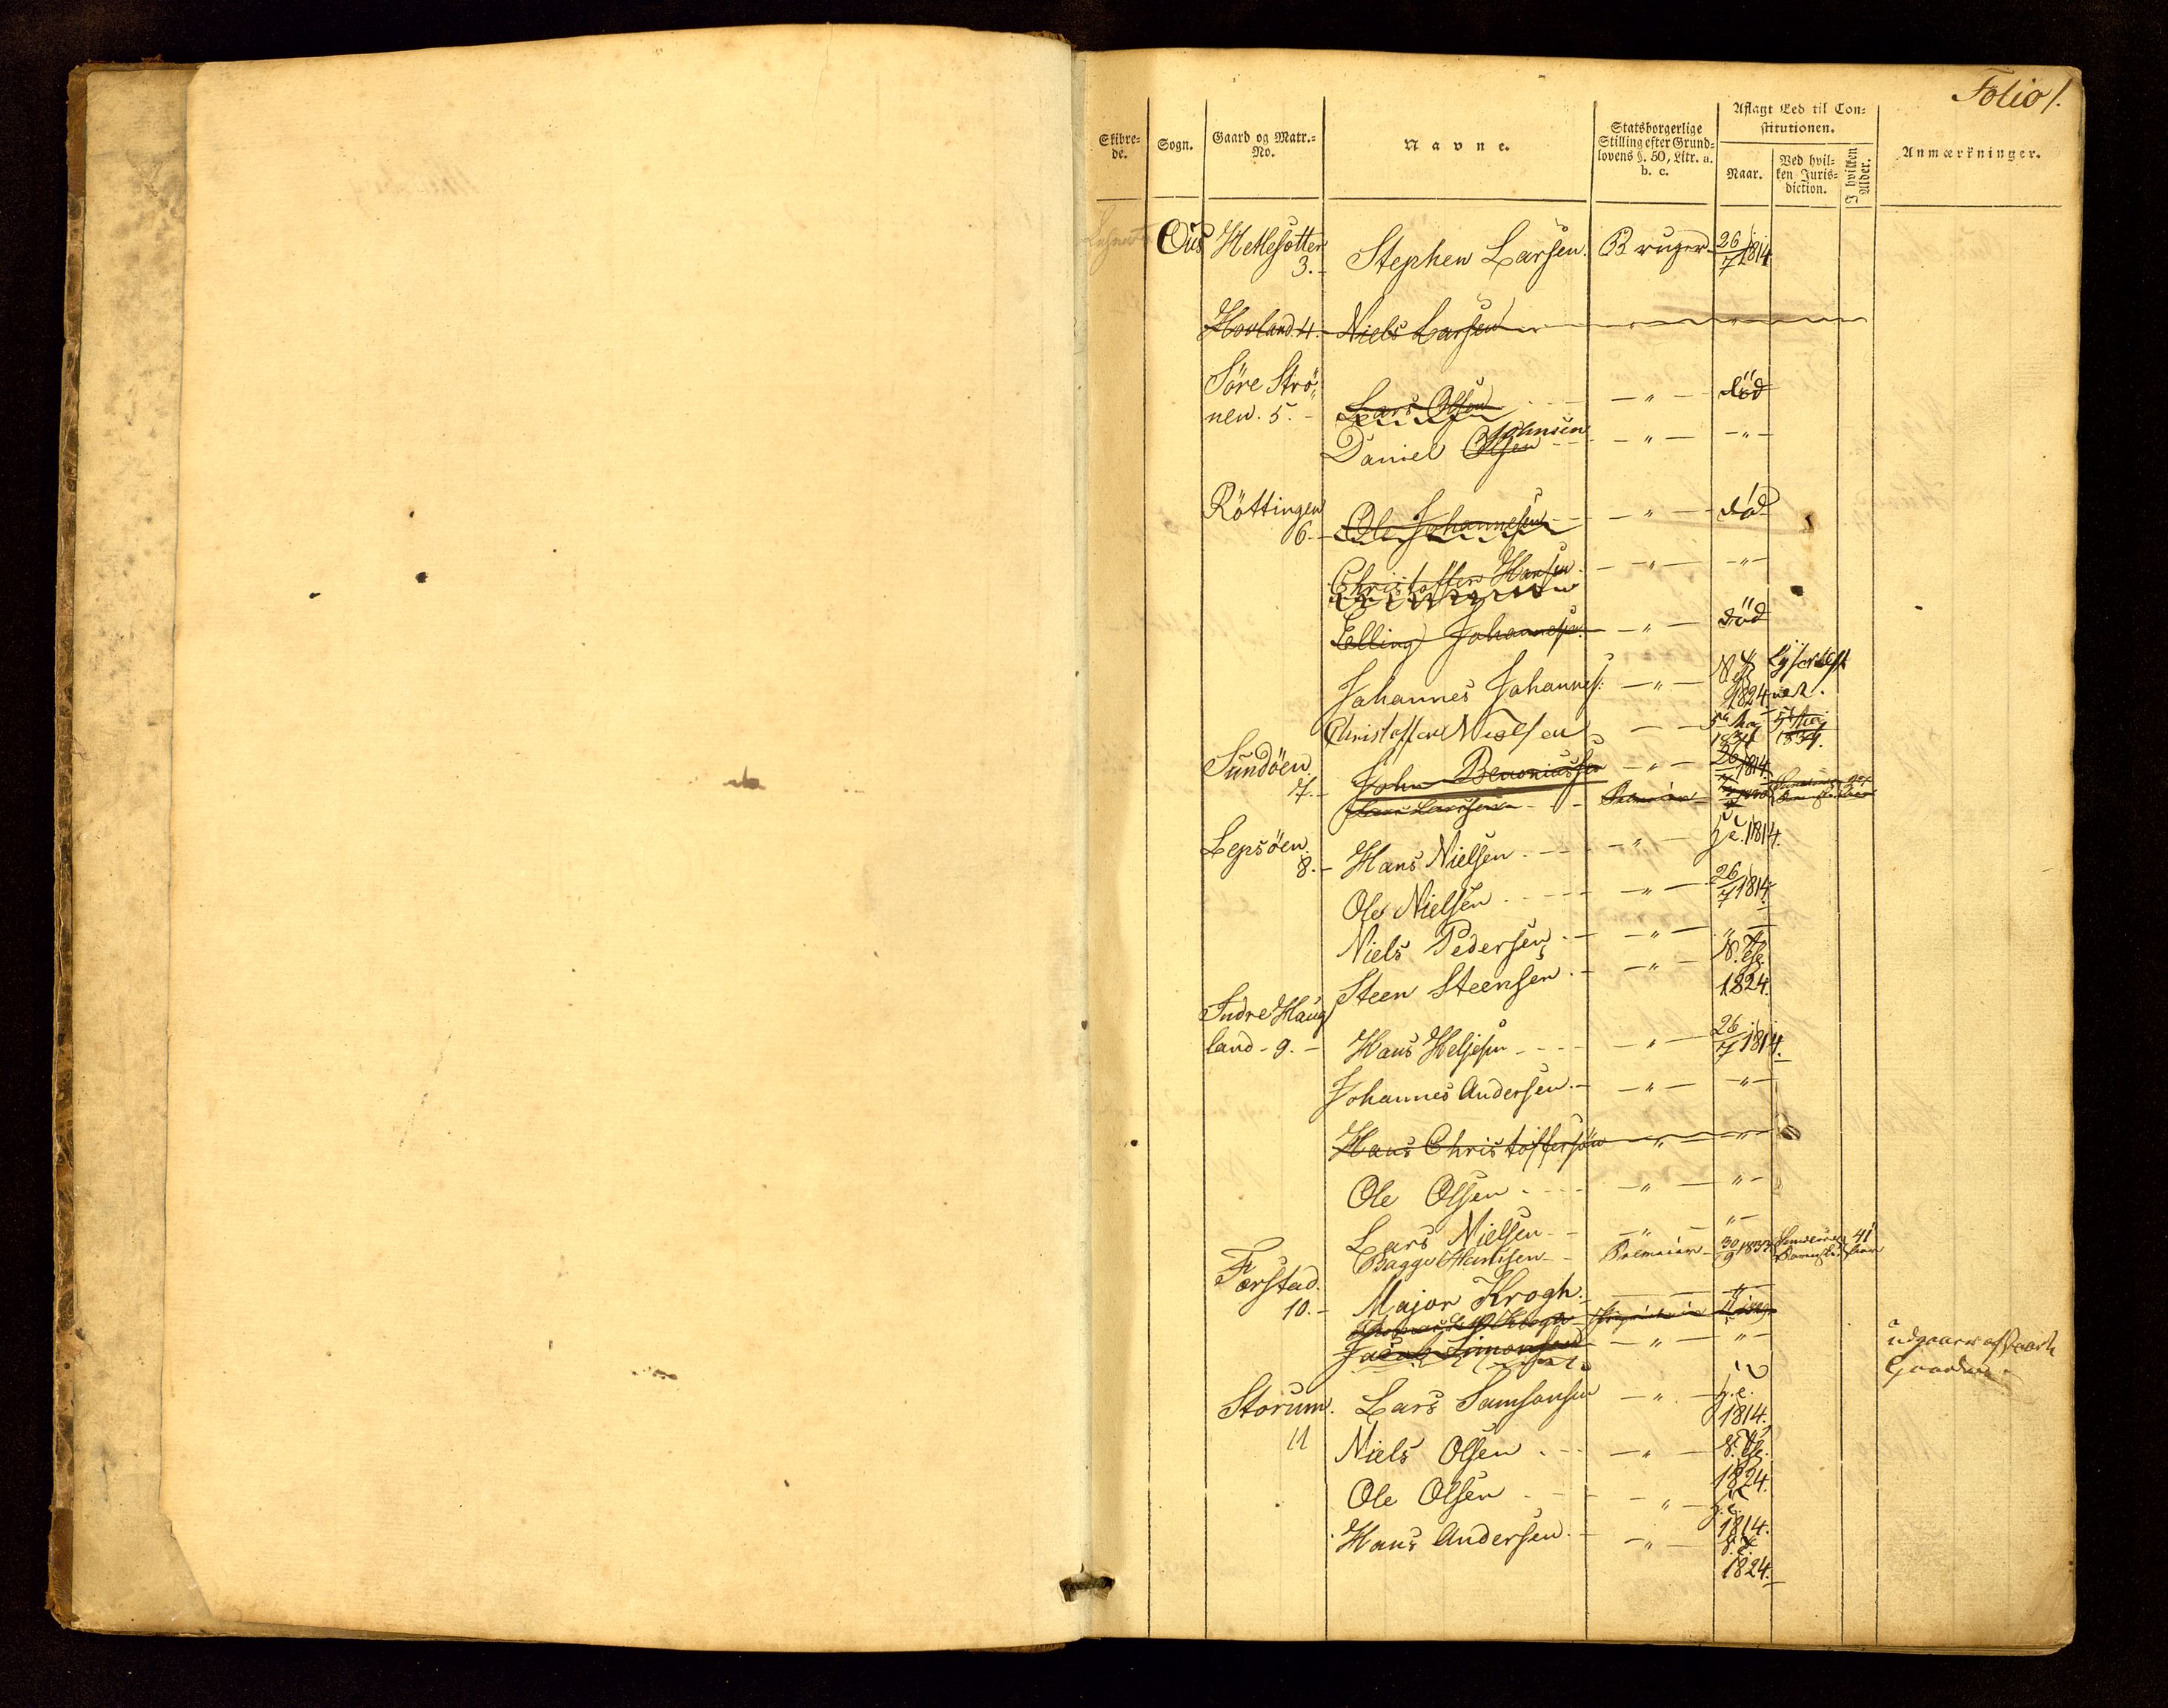 Folio 1.
Skibre-
de.
Sogn.
Gaard og Matr.-
No.
Navne.
Statsborgerlige
Stilling efter Grund-
lovens §. 50, Litr. a.
b. c.
Aflagt Eed til Con-
stitutionen.
Naar.
Ved hvil-
ken Juris-
diction.
I hvilken
Alder.
Anmærkninger.
Ous Hetlesotten Stephen Larsen. Bruger 26/7 1814
3.
Hovland. 4. Niels Larsen
Søre Strø-
nen. 5. Lars Olsen — " — død
Johnsen
Daniel Olsen — " — — " —
Röttingen
6. Ole Johannesen — " — død
Christoffer Hansen — " — — " —
Elling Johannesen — " — död
Johannes Johannes: — " — 1824
Christoffer Nielsen 1834 1834.
Sundöen
7. John Benoniussen — " — 26/7 1814
Lars Larssen
Lepsöen
8. Hans Nielsen — " — 1814.
Ole Nielsen — " — 26/7 1814
Niels Pedersen — " — — " —
Steen Steensen — " — 1824.
Indre Haug
land - 9. Hans Heljesen — " — 26/7 1814.
Johannes Andersen — " — — " —
Hans Christoffersön " "
Ole Olsen — " — " —
Lars Nielsen — " — " —
Bagge Hanssen 30/9 1833 41
Færstad.
10. Major Krogh. — " —
Krogh
Jacob Simonsen — " — " — udgaaer af
Gaarden
Storum. Lars Samsonsen — " — 1814.
11 Niels Olsen — " — 1824.
Ole Olsen — " — 1814.
Hans Andersen — " — 1824.